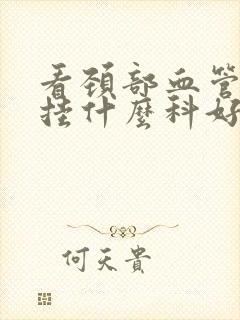 看頚部血管
挂什麽科好
何天貴